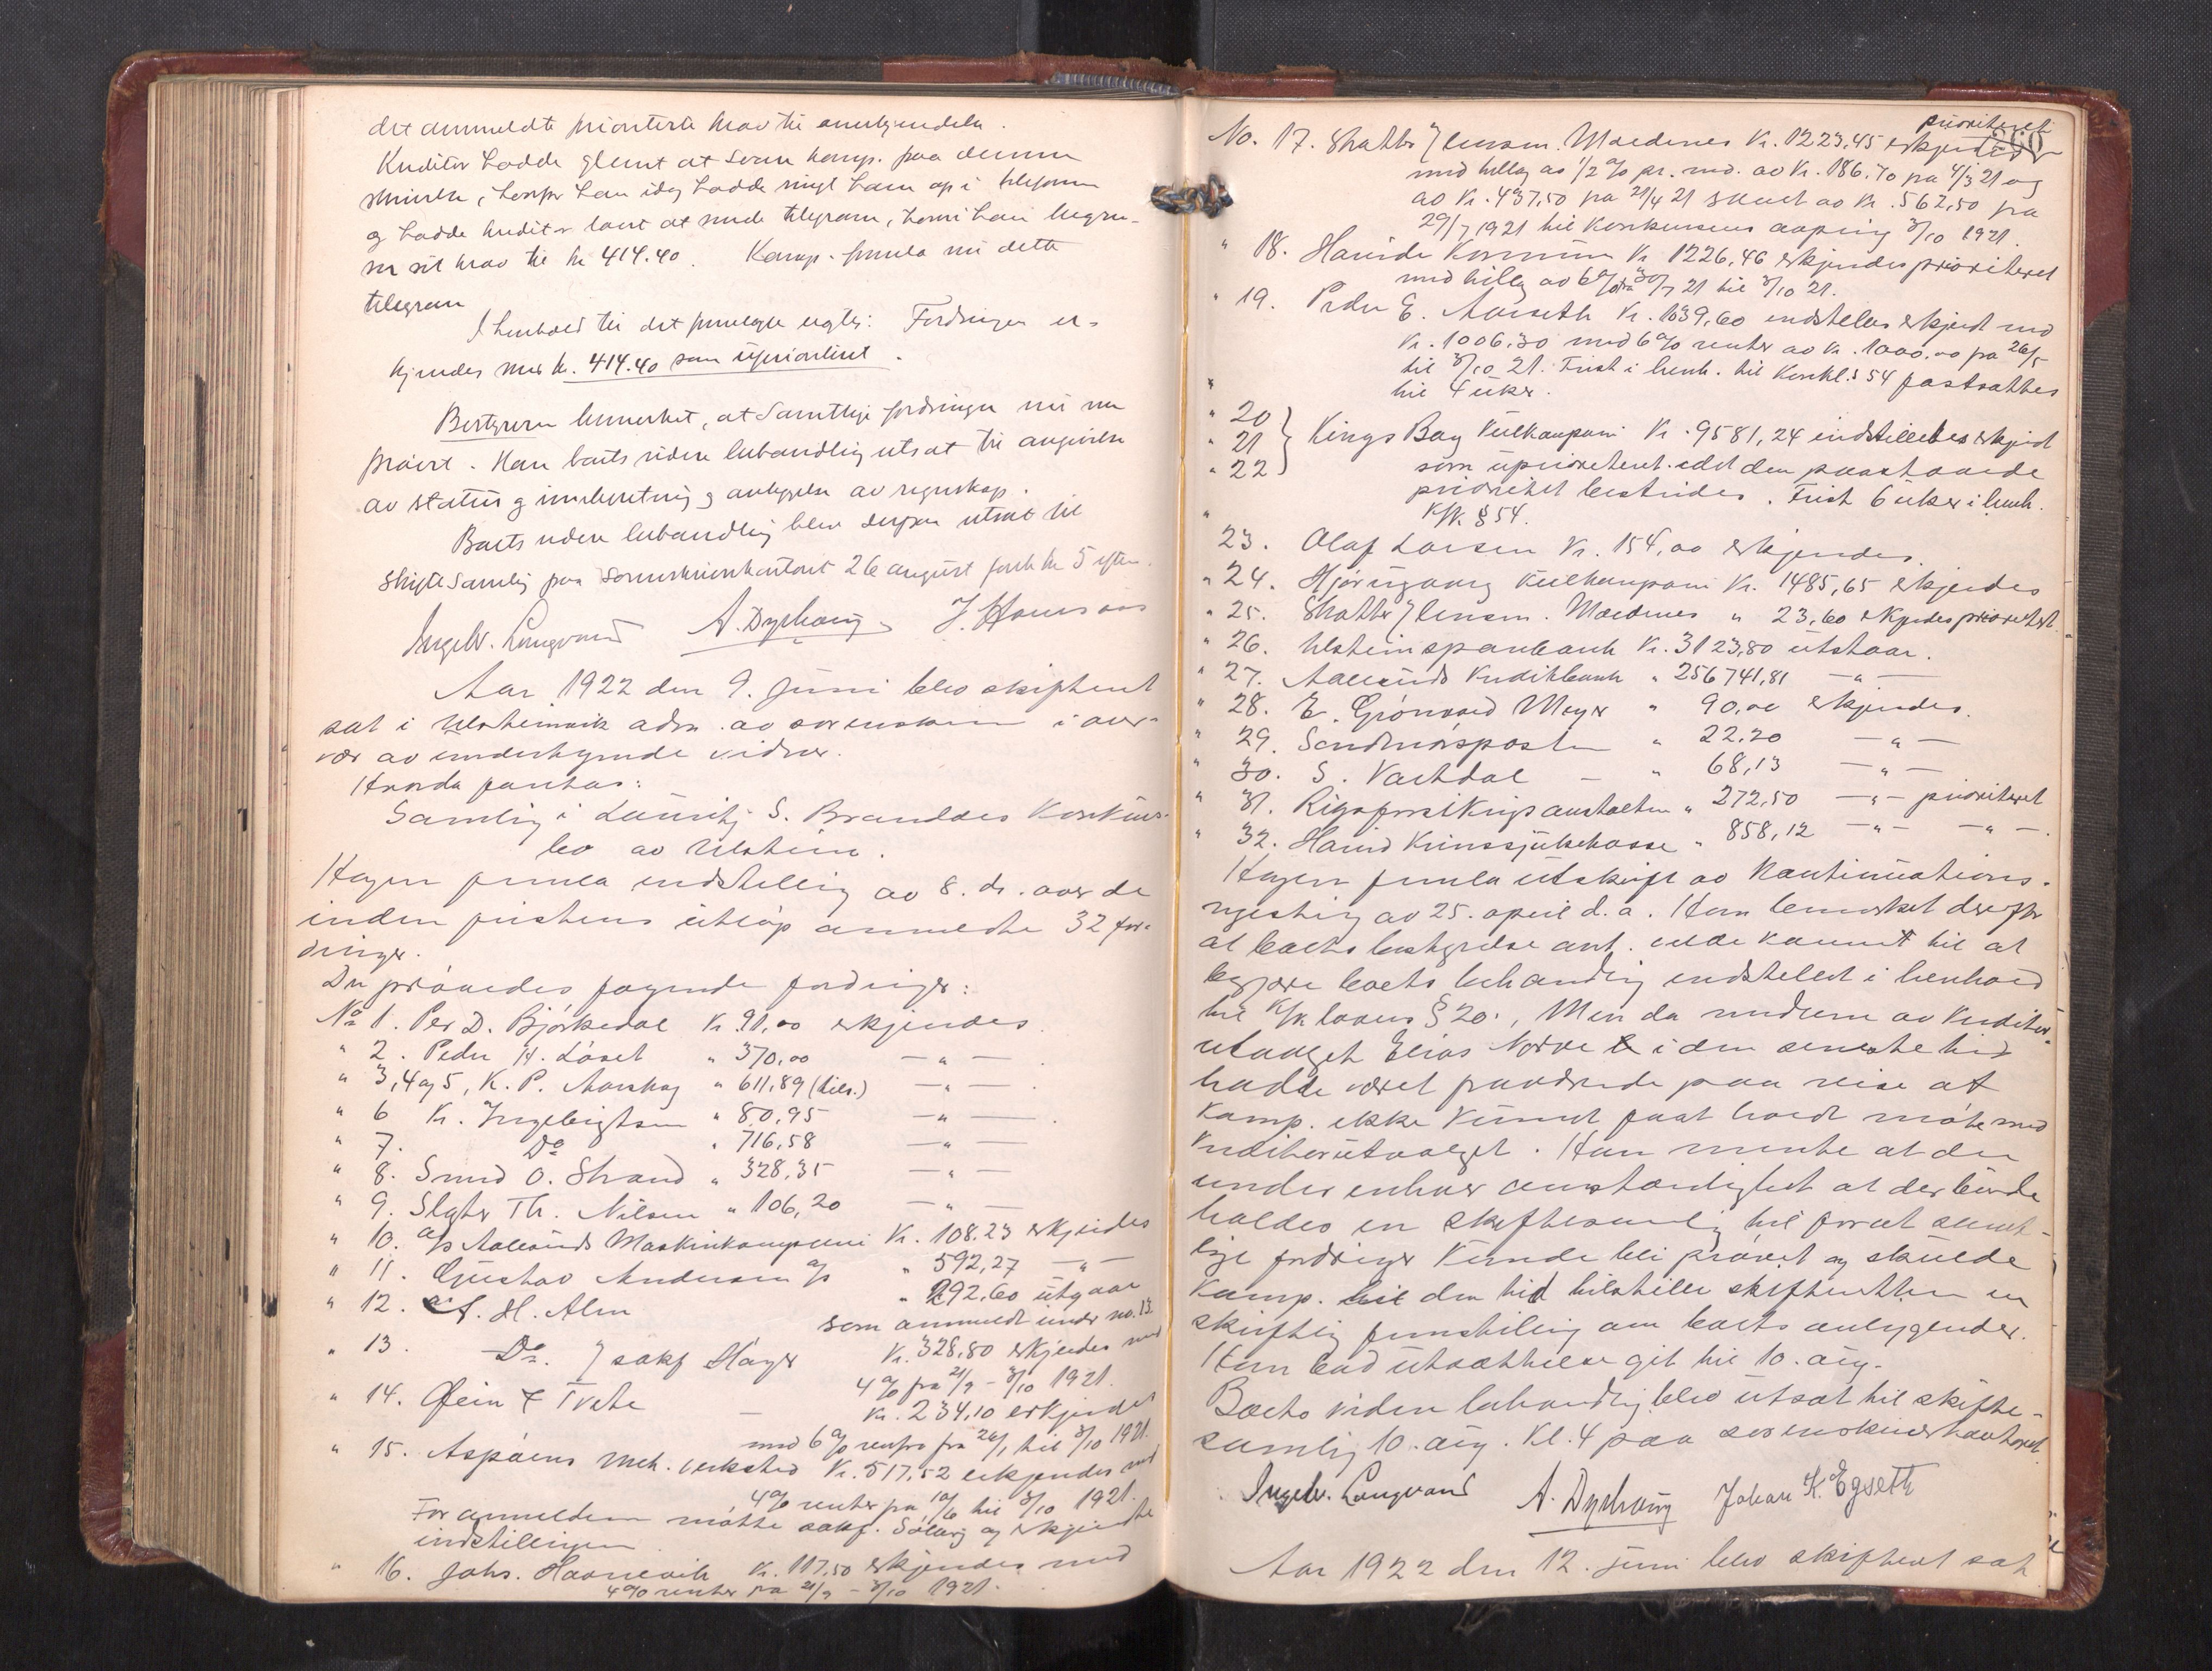 det anmeldte prioriterte krav til anerkjendelse.
Kreditor hadde glemt at svare komp. paa denne
skrivelse, hvorfor han idag hadde ringt ham op i telefonen
og hadde kreditor lovet at sende telegram, hvori han begræn-
ser sit krav til kr 414.40. Komp. fremla nu dette
telegram
I henhold til det fremlagte vedtoges: Fordringen er-
kjendes med kr. 414.40 som uprioritert.
Bestyreren bemerket, at samtlige fordringer nu var
prøvet. Han bad boets videre behandling utsat til avgivelse
av status og innberetning og avleggelse av regnskap.
Boets videre behandling blev derpaa utsat til
skiftesamling paa Sorenskriverkontoret 26 august førstk. kl 5 efterm.
Ingebr. Langvand A. Dyrhaug J. Homsaas
Aar 1922 den 9. juni blev skifteret
sat i Ulsteinvik adm. av sorenskriveren i over-
vær av undertegnede vidner.
Hvorda foretas:
Samling i Lauritz S. Brandals konkurs-
bo av Ulstein.
Hagen fremla indstilling av 8. ds. over de
inden fristens utløp anmeldte 32 for-
dringer.
Der prøvedes følgende fordringer:
No 1. Per D. Bjørkedal Kr 91,00 erkjendes.
" 2. Peder H. Løset " 370,00 — " — .
" 3,4 og 5, K. P. Aarskog " 611,89 (tils.) — " — .
" 6 Kr. Ingebrigtsen " 80,95 — " — .
" 7. Do " 716,58 — " —
" 8. Smed O. Strand " 328,35 — " —
" 9. Slagter Th. Nilsen " 106,20 — " —
" 10. A/s Aalesunds Maskinkompani Kr. 108.23 erkjendes
" 11. Gustav Andersen A/s " 592,27 — " —
" 12. A. H. Alm " 292,60 utgaar
som anmeldt under no. 13.
" 13. Do. v/ sakf Høyer Kr. 328,80 erkjendes med
4 % fra 21/9 - 3/10 1921.
" 14. Øein & Tvete — Kr. 234,10 erkjendes
med 6 % renter fra 26/1 til 3/10 1921.
" 15. Aspøens mek. verksted Kr. 517,52 erkjendes med
4 % renter fra 10/6 til 3/10 1921.
For anmelderen møtte sakf. Solberg og erkjendte
indstillingen.
" 16. Johs. Havnevik Kr. 117,50 erkjendes med
4 % renter fra 21/9 - 3/10 1921.
prioriteret
No. 17. Skatter v/ lensm. Moldenes Kr. 1223,45 erkjendes
med tillæg av 1/2 % pr. md. av Kr. 186.70 fra 4/3 21 og
av Kr. 437,50 fra 21/4 21 samt av Kr. 562,50 fra
29/7 1921 til konkursens aapning 3/10 1921.
" 18. Hareide Kommune Kr 1226,46 erkjendes prioriteret
med tillæg av 6 % fra 30/7 21 til 3/10 21.
" 19. Peder E. Aarseth Kr. 1639,60 indstilles erkjendt med
Kr. 1006.30 med 6 % renter av Kr. 1000.00 fra 26/5
til 3/10 21. Frist i henh. til Konkl. § 54 fastsattes
til 4 uker.
" 20
" 21 } Kings Bay Kulkompani Kr. 9581,24 indstilledes erkjendt
" 22
som uprioriteret idet den paastaaede
prioritet bestrides. Frist 6 uker i henh.
K/K § 54.
" 23. Olaf Larsen Kr. 154,00 erkjendes.
" 24. Hjørungavag Kulkompani Kr. 1485,65 erkjendes
" 25. Skatter v/ lensm. Moldenes " 23,60 erkjendes prioritert.
" 26. Ulstein sparebank Kr. 3123,80 utstaar.
" 27. Aalesunds Kreditbank " 256741,81 — " —
" 28. E. Grönvold Meyer " 90,00 erkjendes.
" 29. Søndmørsposten " 22.20 — " —
" 30. S. Vartdal — " 68,13 — " —
" 31. Riksforsikringsanstalten " 272,50 — " — prioriteret
" 32. Hareid Kredssjukekasse " 858,12 — " — — " — .
Hagen fremla utskrift av Kautinuations-
registring av 25. april d. a. Han bemerket derefter
at boets bestyrelse ant. vilde kommet til at
begjære boets behandling indstillet i henhold
til K/K lovens § 20., Men da medlem av kreditor-
utvalget Elias Norve i den seneste tid
hadde været fraværende paa reise at
Komp. ikke kunnet faat holdt møte med
kreditorutvalget. Han mente at der
under enhver omstændighet at der burde
holdes en skiftesamling til for at samt-
lige fordringer kunde bli prøvet og skulde
Komp. til den tid tilstille skifteretten en
skriftlig fremstilling om boets anliggender.
Han bad utsættelse git til 10. aug.
Boets videre behandling blev utsat til skifte-
samling 10. aug. kl. 4 paa sorenskriverkontoret.
Ingebr. Langvand A. Dyrhaug Johan K. Egseth
Aar 1922 den 12. juni blev skifteret sat